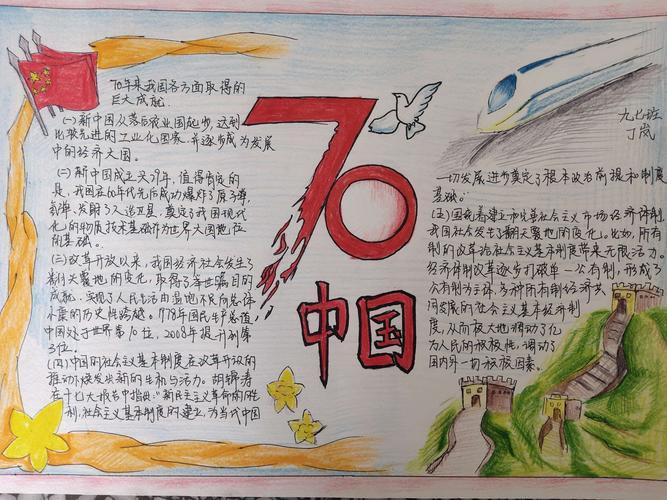 70年来我国各方面取得的
巨大成就.
(一)新中国从落后农业国起步,达到
比较先进的工业化国家,并逐步成为发展
中的经济大国。
(二)新中国成立头29年,值得肯定的
是,我国在60年代先后成功爆炸了原子弹,
氢弹、发射了人造卫星,奠定了我国现代
化的物质技术基础作为世界大国地位
的基础。
(三)改革开放以来,我国经济社会发生了
翻天覆地的变化,取得了举世瞩目的
成就,实现了人民生活由温饱不足向总体
小康的历史性跨越。1978年国民生产总值
中国处于世界第10位,2008年提升到第
3位.
(四)中国的社会主义基本制度在改革开放的
推动下焕发出新的生机与活力。胡锦涛
在十七大报告中指出:"新民主主义革命的胜
利,社会主义基本制度的建立,为当代中国
70
中国
九七班
丁岚
一切发展进步奠定了根本政治前提和制度
基础。
(五)国统着建立和完善社会主义市场经济体制,
我国社会发生了翻天覆地的变化。比如,所有
制的改革给社会主义基本制度带来无限活力。
经济体制改革逐步打破单一公有制,形成了
公有制为主体 多种所有制经济共
同发展的社会主义基本经济制
度,从而极大地调动了亿
万人民的积极性,调动了
国内外一切积极因素。